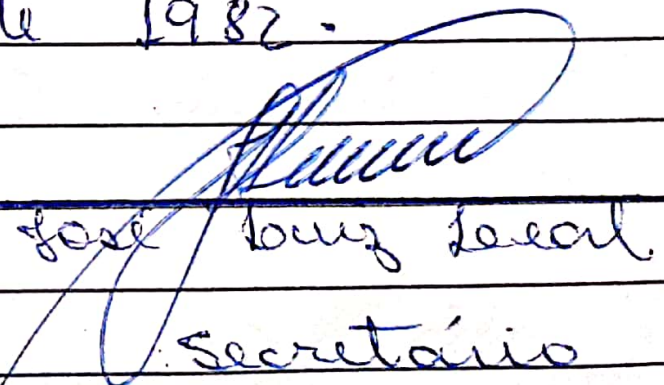 de 1982.
José Luiz Leal
Secretário